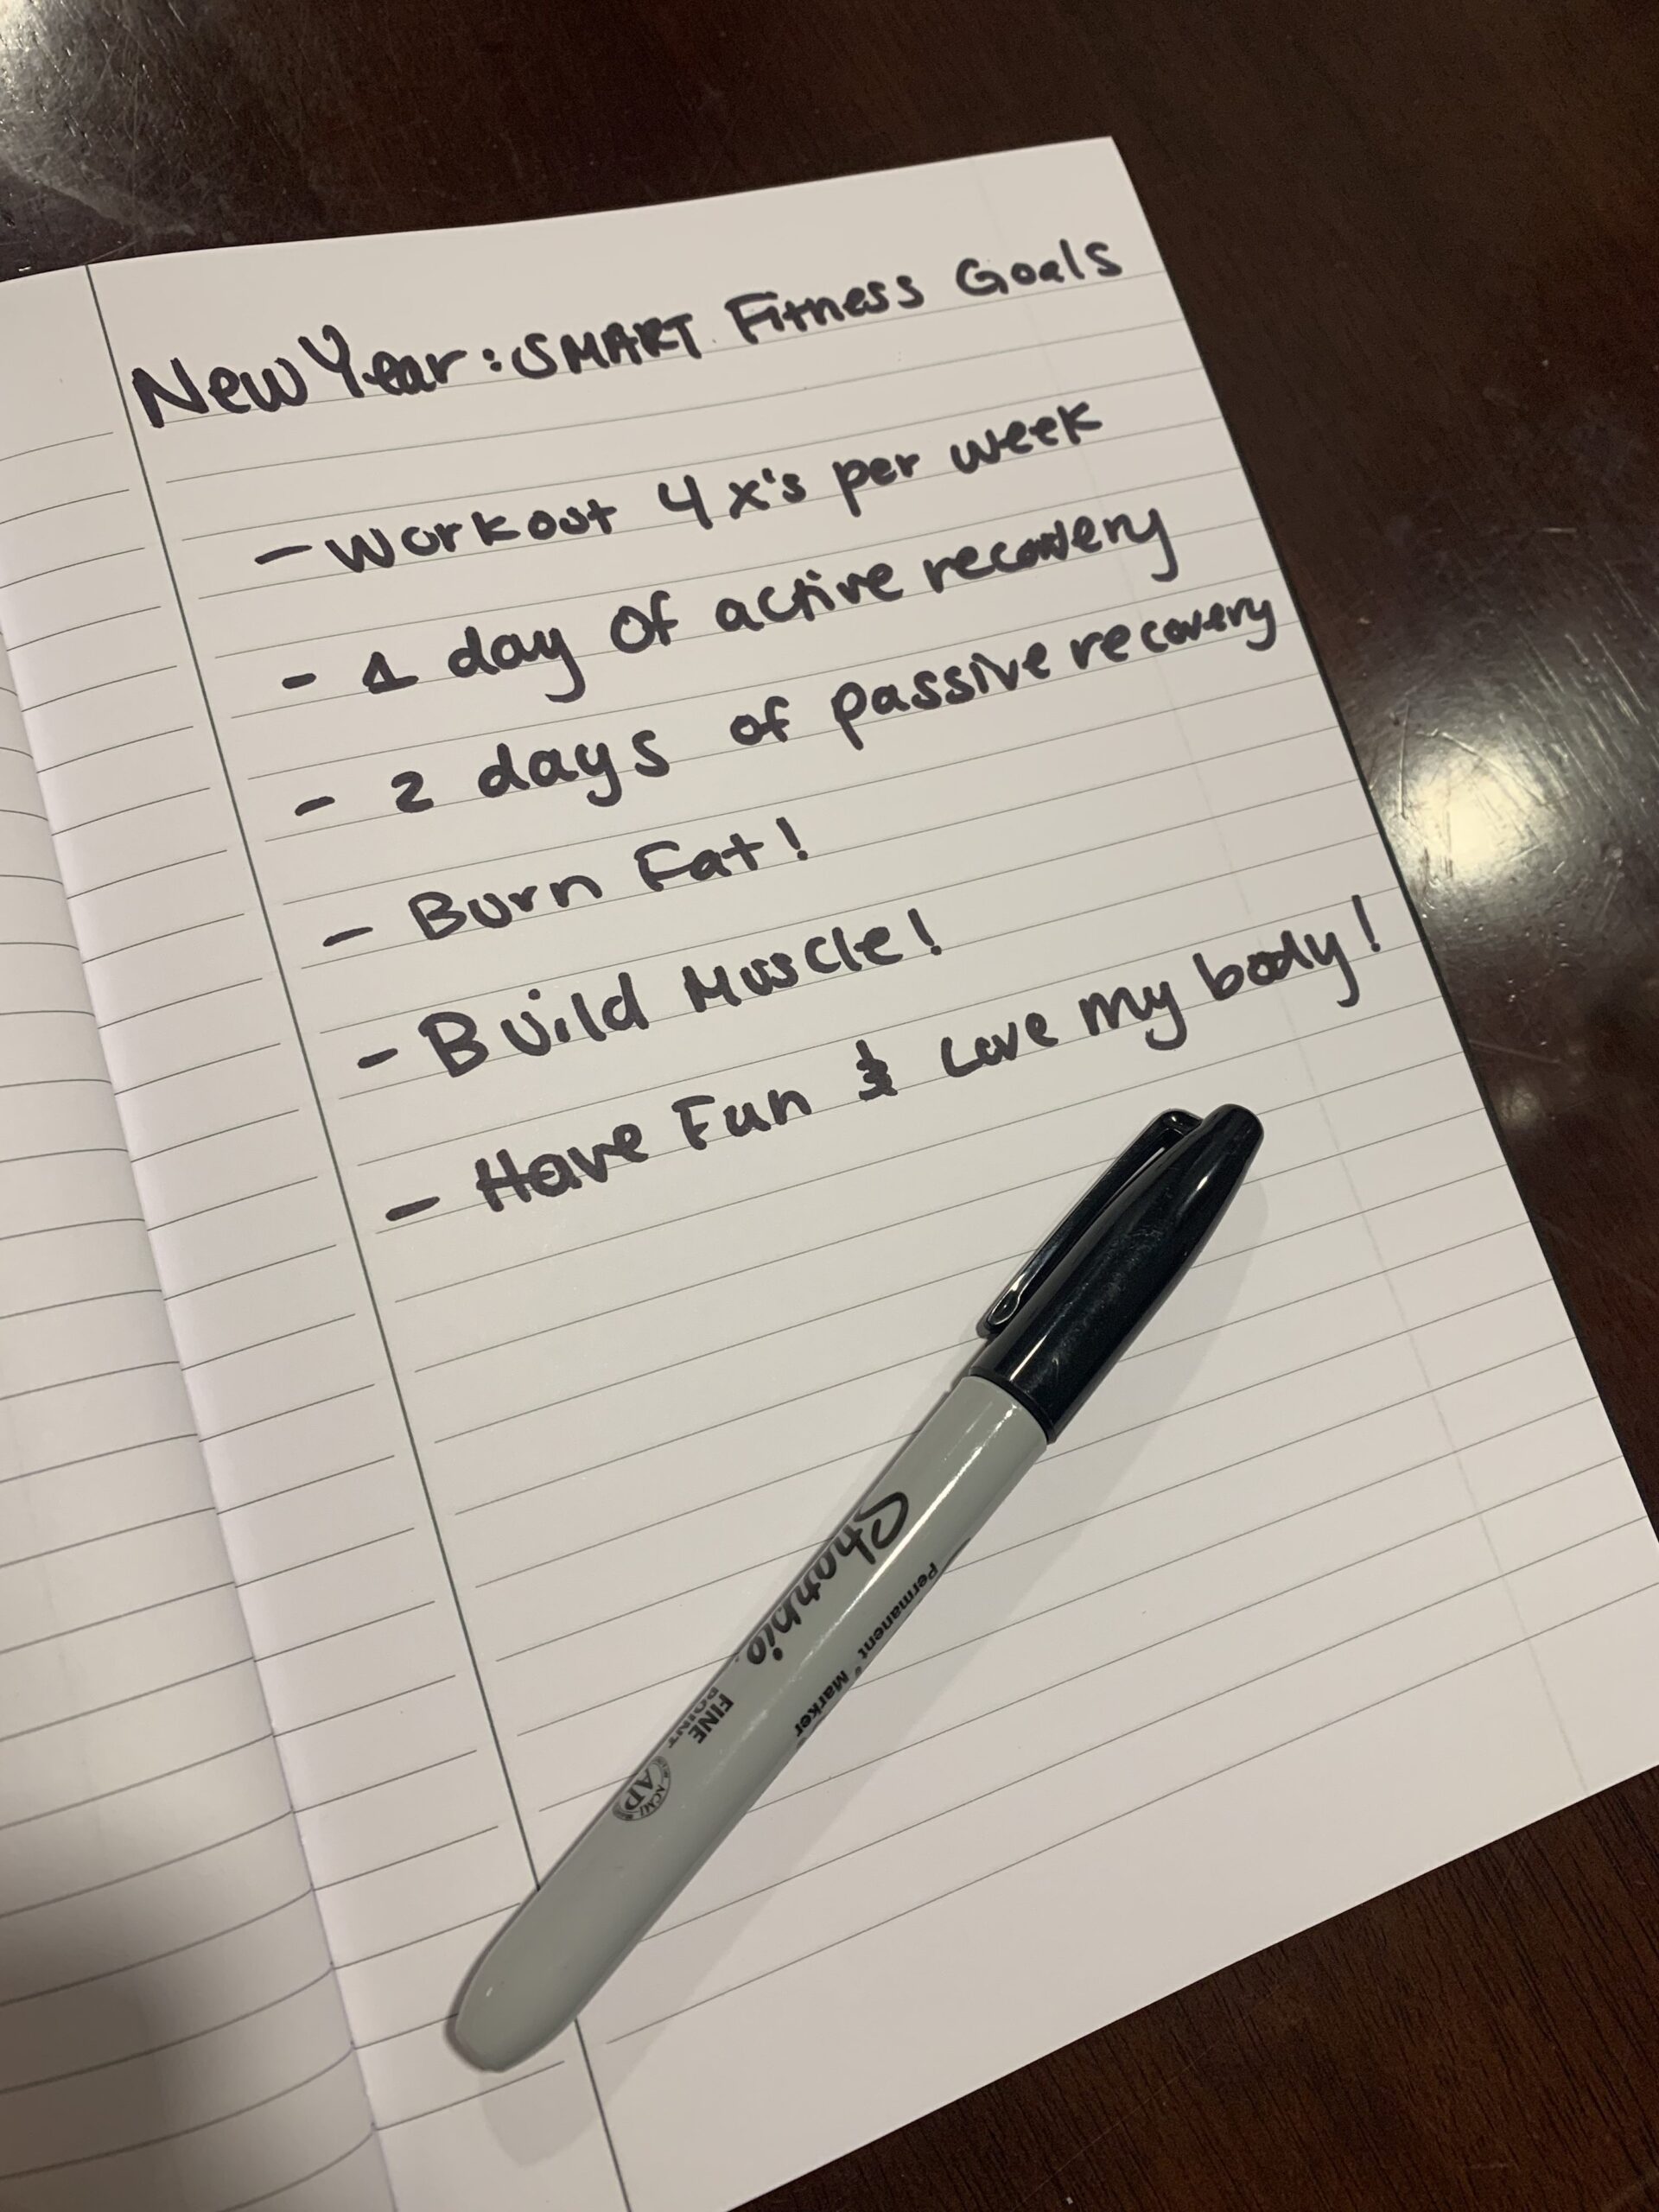 New Year: SMART Fitness Goals
- Workout 4x's per week
- 1 day of active recovery
- 2 days of passive recovery
- Burn Fat!
- Build Muscle!
- Have Fun & Love my body!
Sharpie
FINE
POINT
Permanent Marker
ACMI
AP